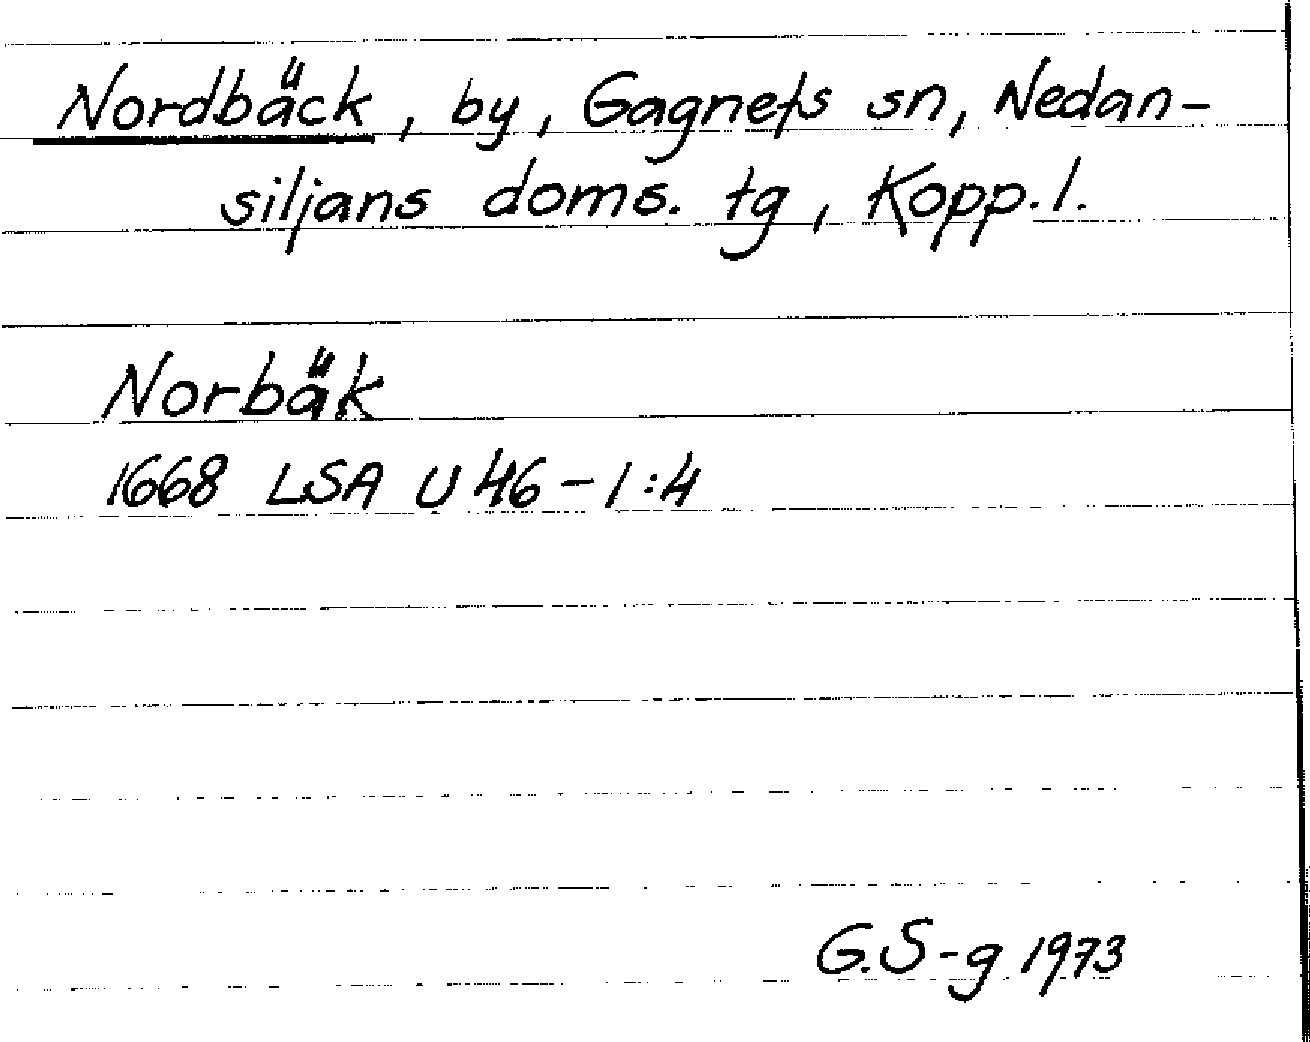 Nordbäck, by, Gagnefs sn, Nedan-
siljans doms. tg, Kopp. l.
Norbäk
1668 LSA U 46-1:4
G.S-g 1973